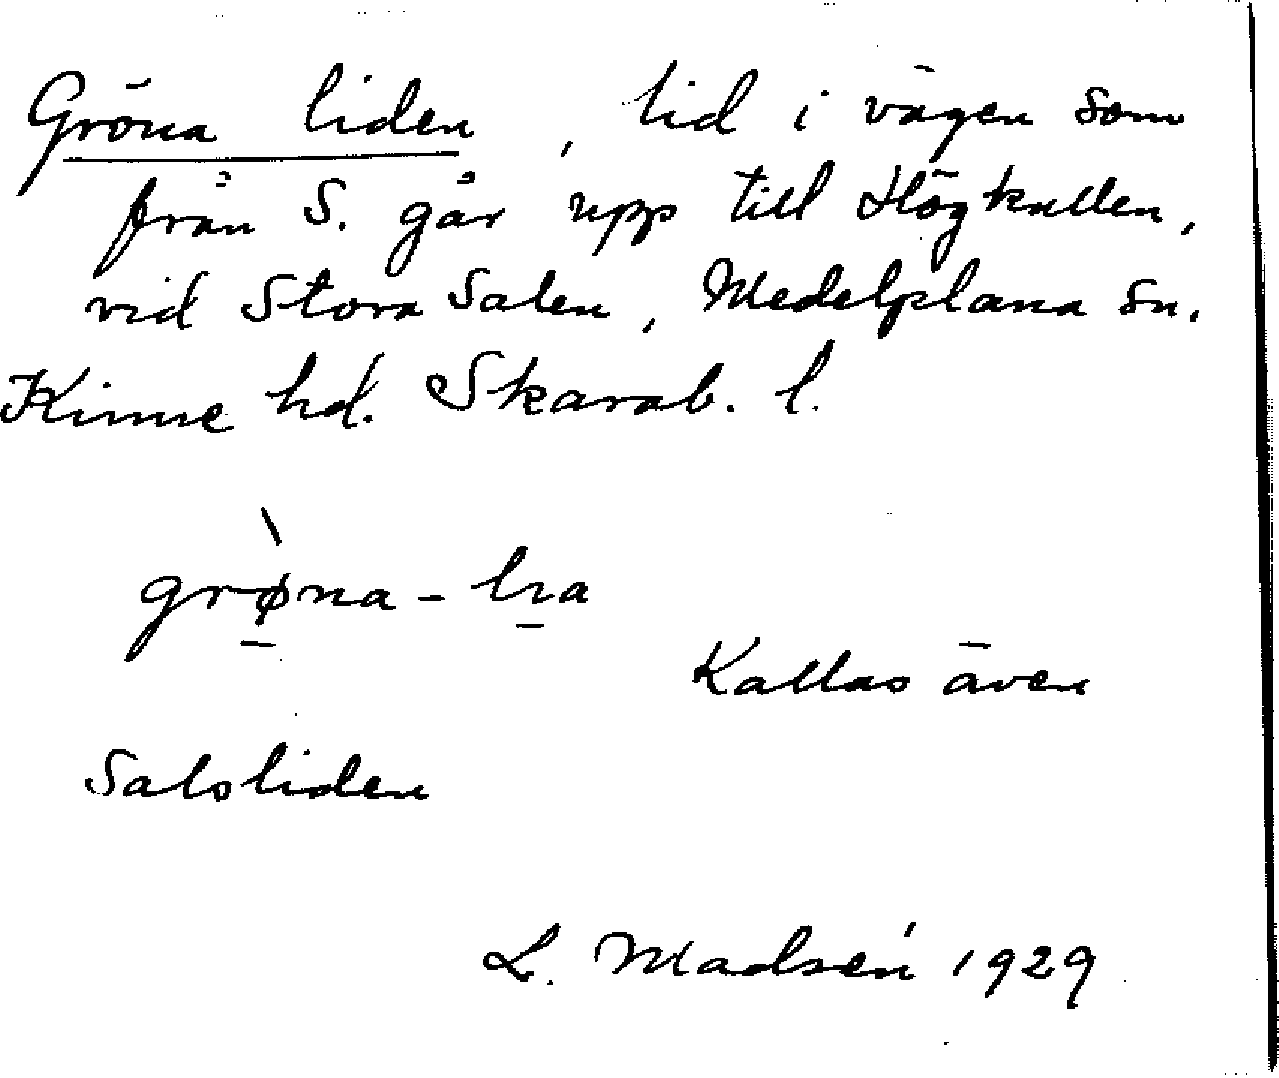 Gröna liden, lid i vägen som
från S. går upp till Högkullen,
vid Stora Salen, Medelplana sn.
Kinne hd. Skarab. l.
grø̀na - lıa
Kallas även
Salsliden
L. Madsén 1929